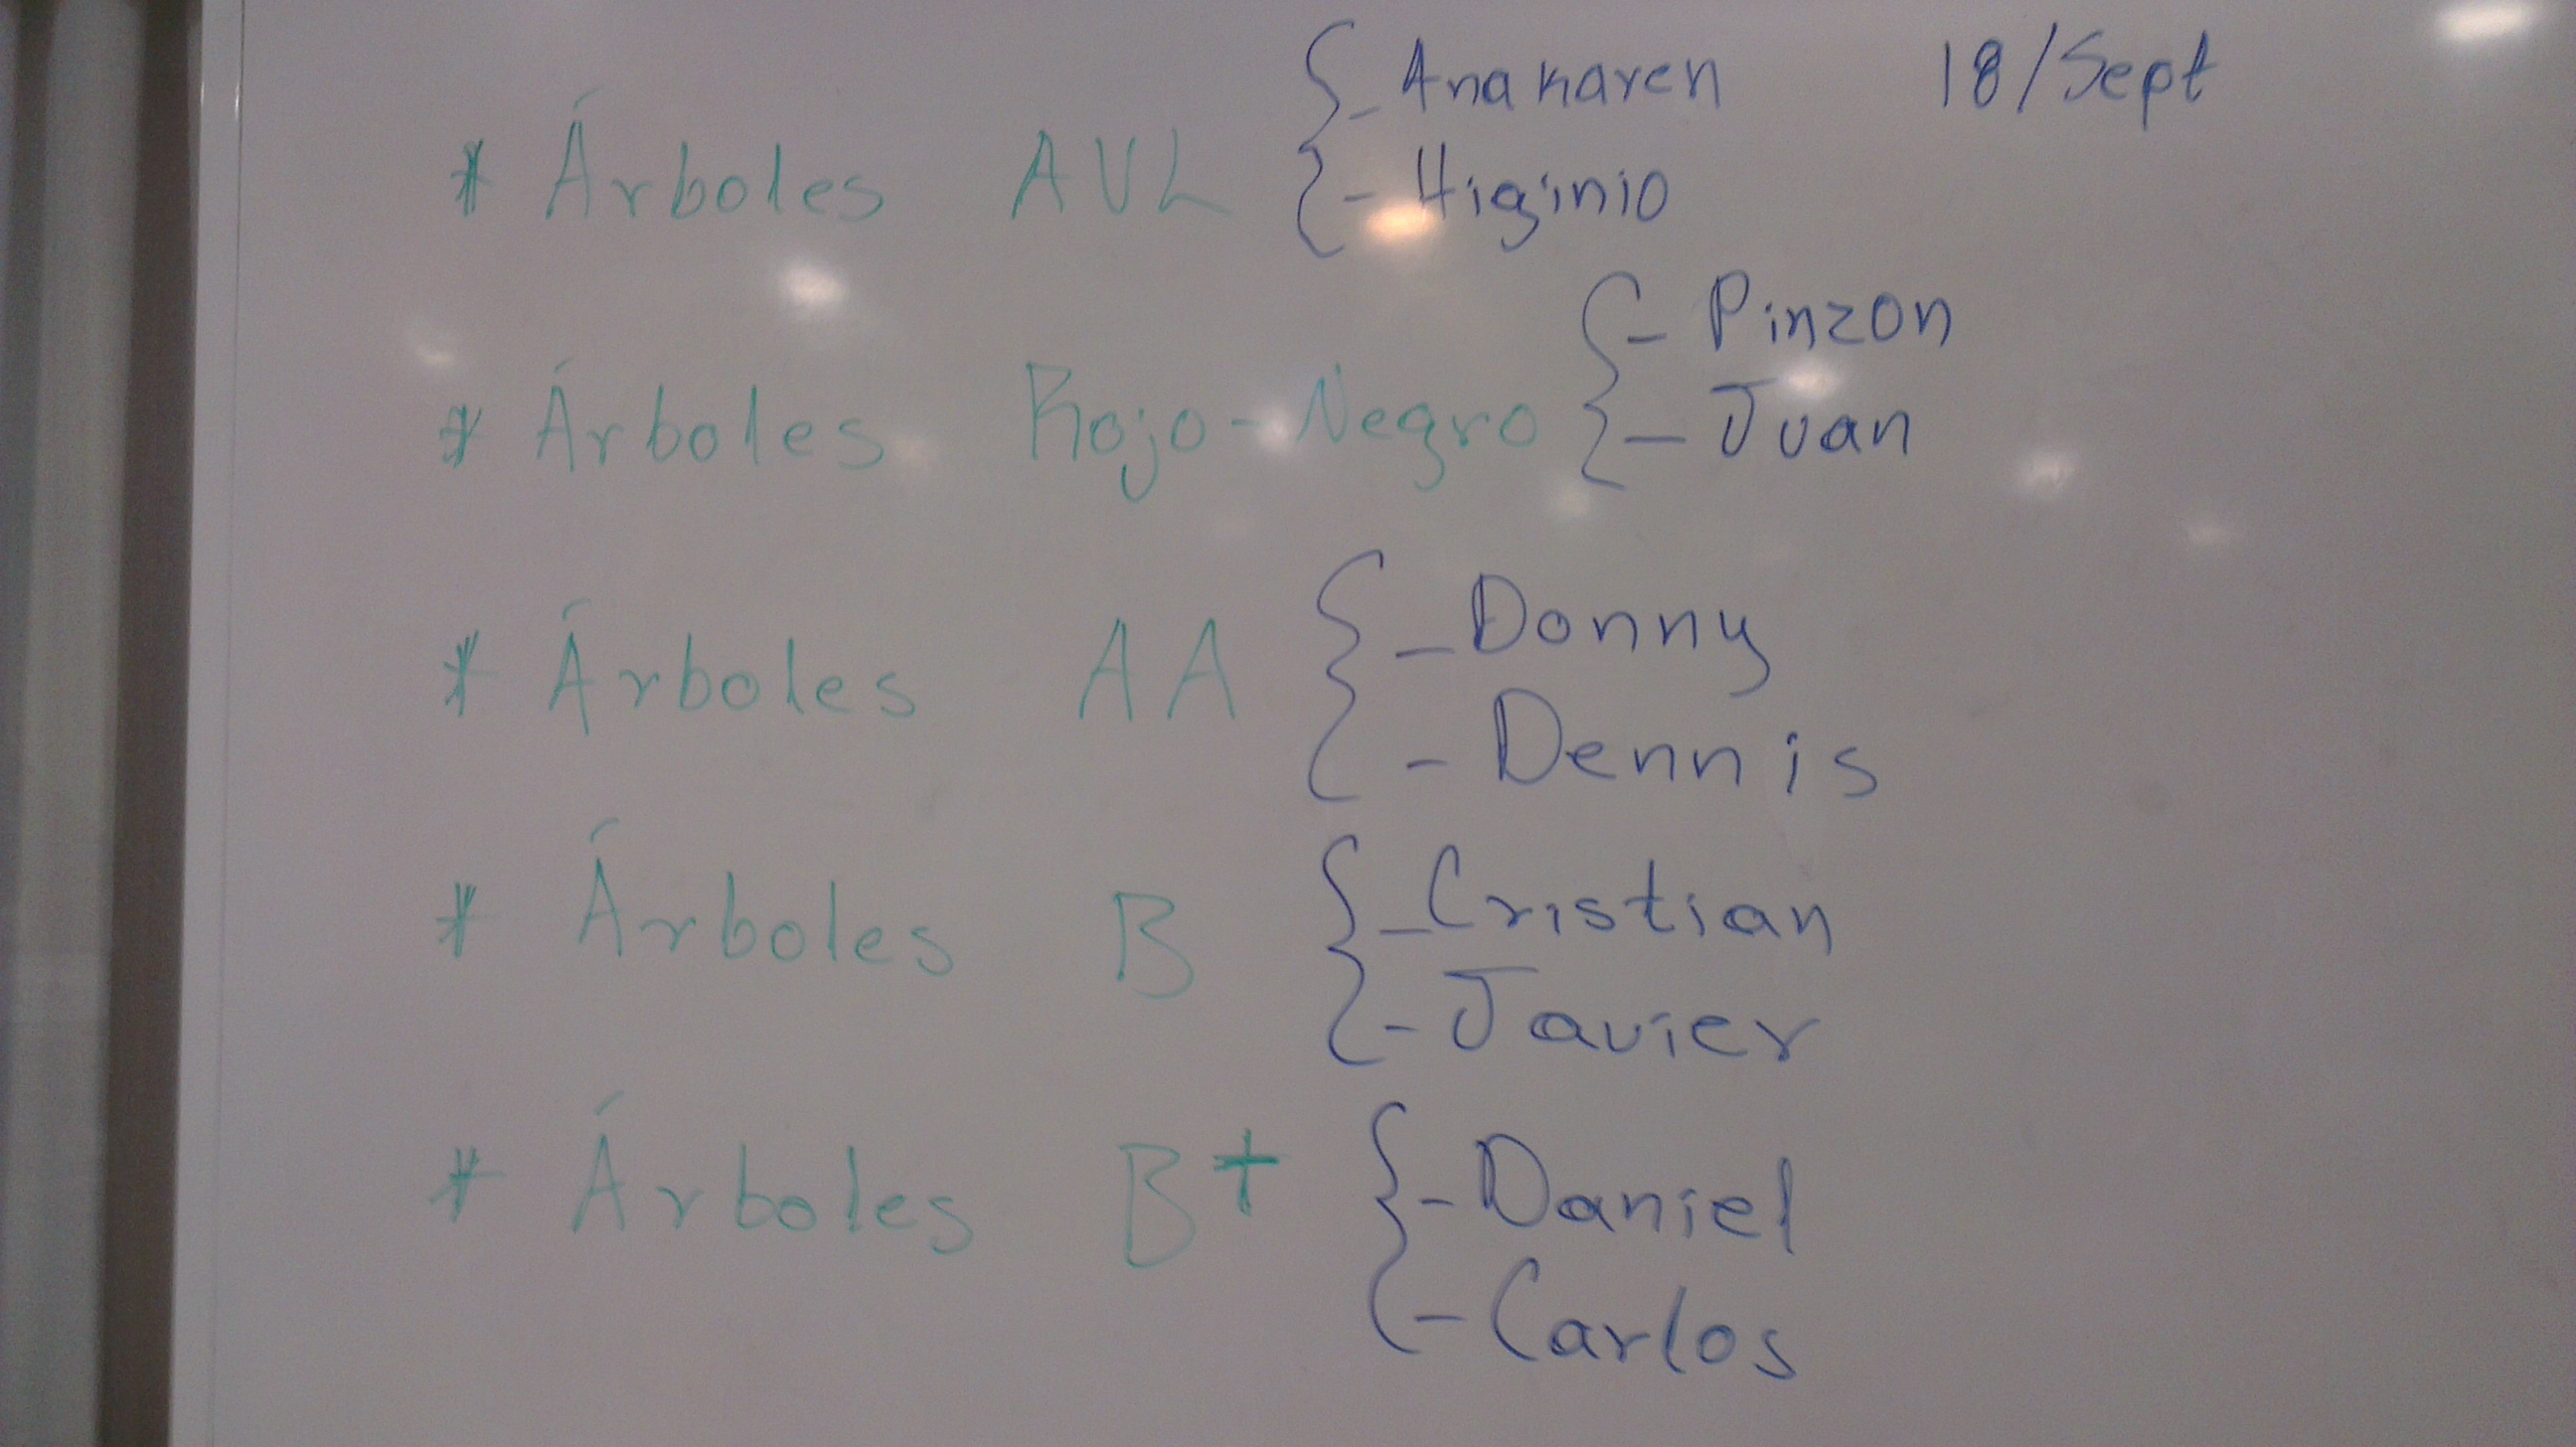 - Anakaren 18/Sept
* Árboles AVL
- Higinio
- Pinzon
* Árboles Rojo-Negro
- Juan
- Donny
* Árboles AA
- Dennis
- Cristian
* Árboles B
- Javier
- Daniel
* Árboles B+
- Carlos